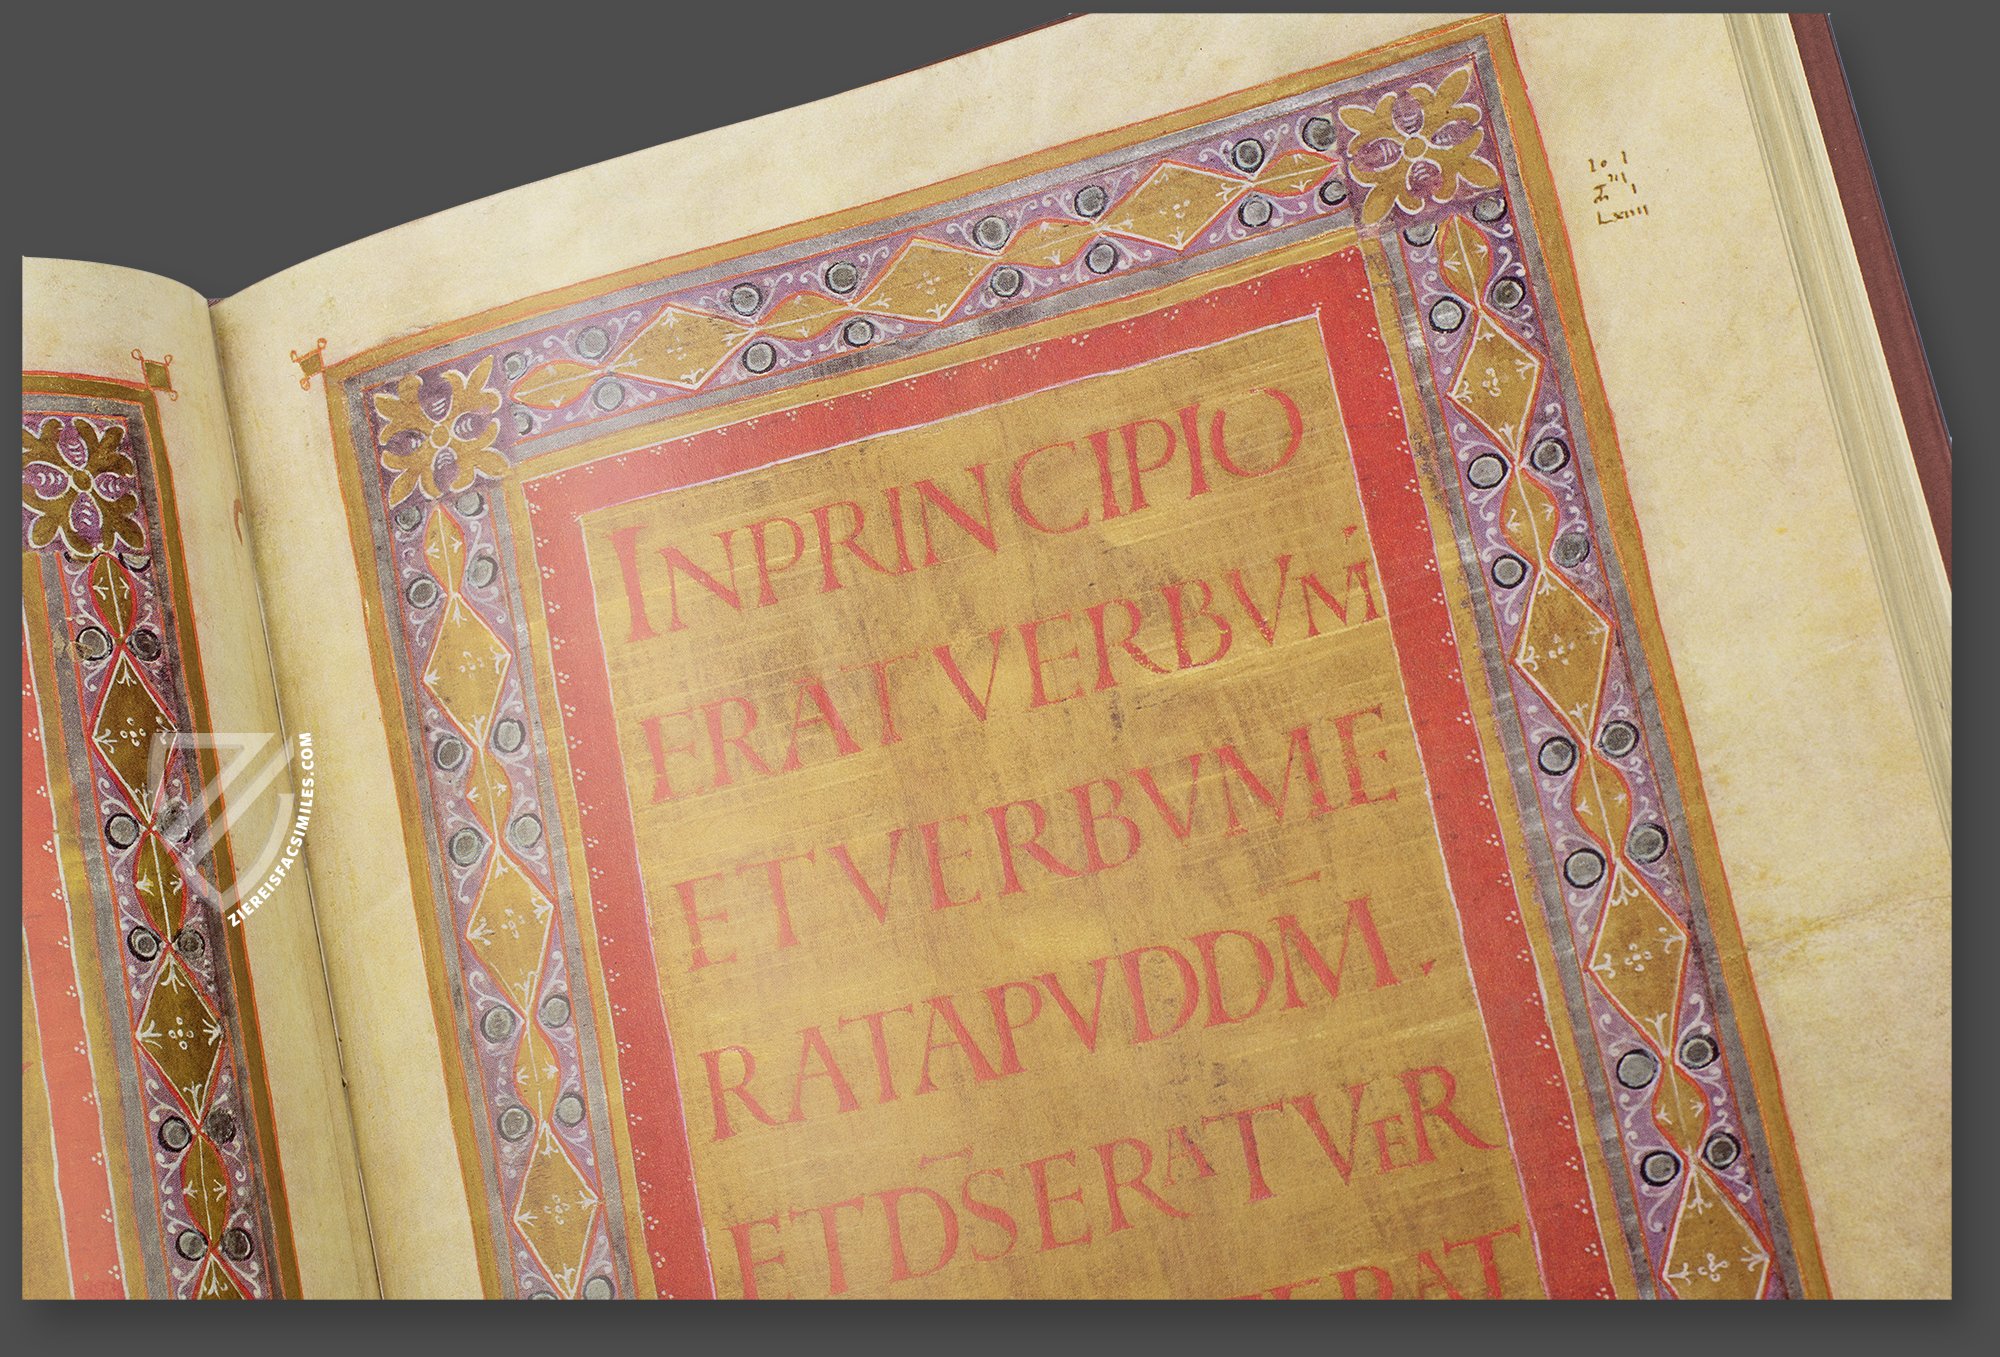 INPRINCIPIO
ERAT VERBVM·
ET VERBVM E
RAT APVD D̄M̄.
ET D̄S ERAT VER
ERAT
Io I
LXIIII
ZIEREISFACSIMILES.COM